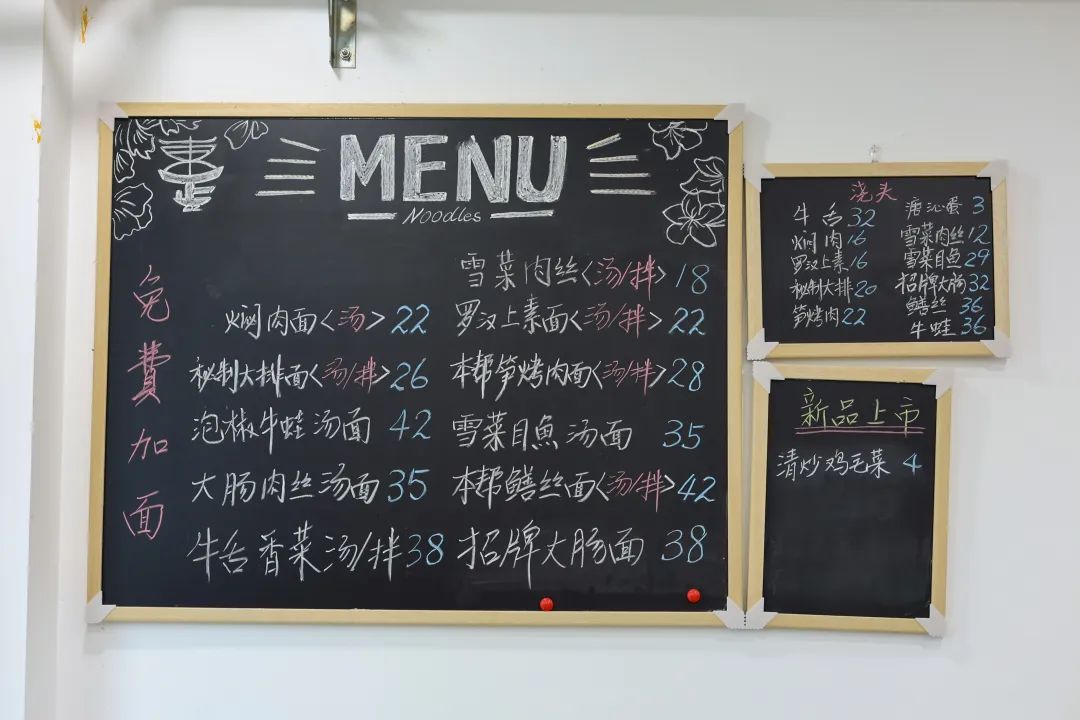 MENU
Noodles
免費加面
雪菜肉丝<汤/拌> 18
焖肉面<汤> 22
罗汉上素面<汤/拌> 22
秘制大排面<汤/拌> 26
本帮笋烤肉面<汤/拌> 28
泡椒牛蛙汤面 42
雪菜目魚汤面 35
大肠肉丝汤面 35
本帮鳝丝面<汤/拌> 42
牛舌香菜汤/拌 38
招牌大肠面 38
浇头
牛舌 32
焖肉 16
罗汉上素 16
秘制大排 20
笋烤肉 22
溏沁蛋 3
雪菜肉丝 12
雪菜目魚 29
招牌大肠 32
鳝丝 36
牛蛙 36
新品上市
清炒鸡毛菜 4